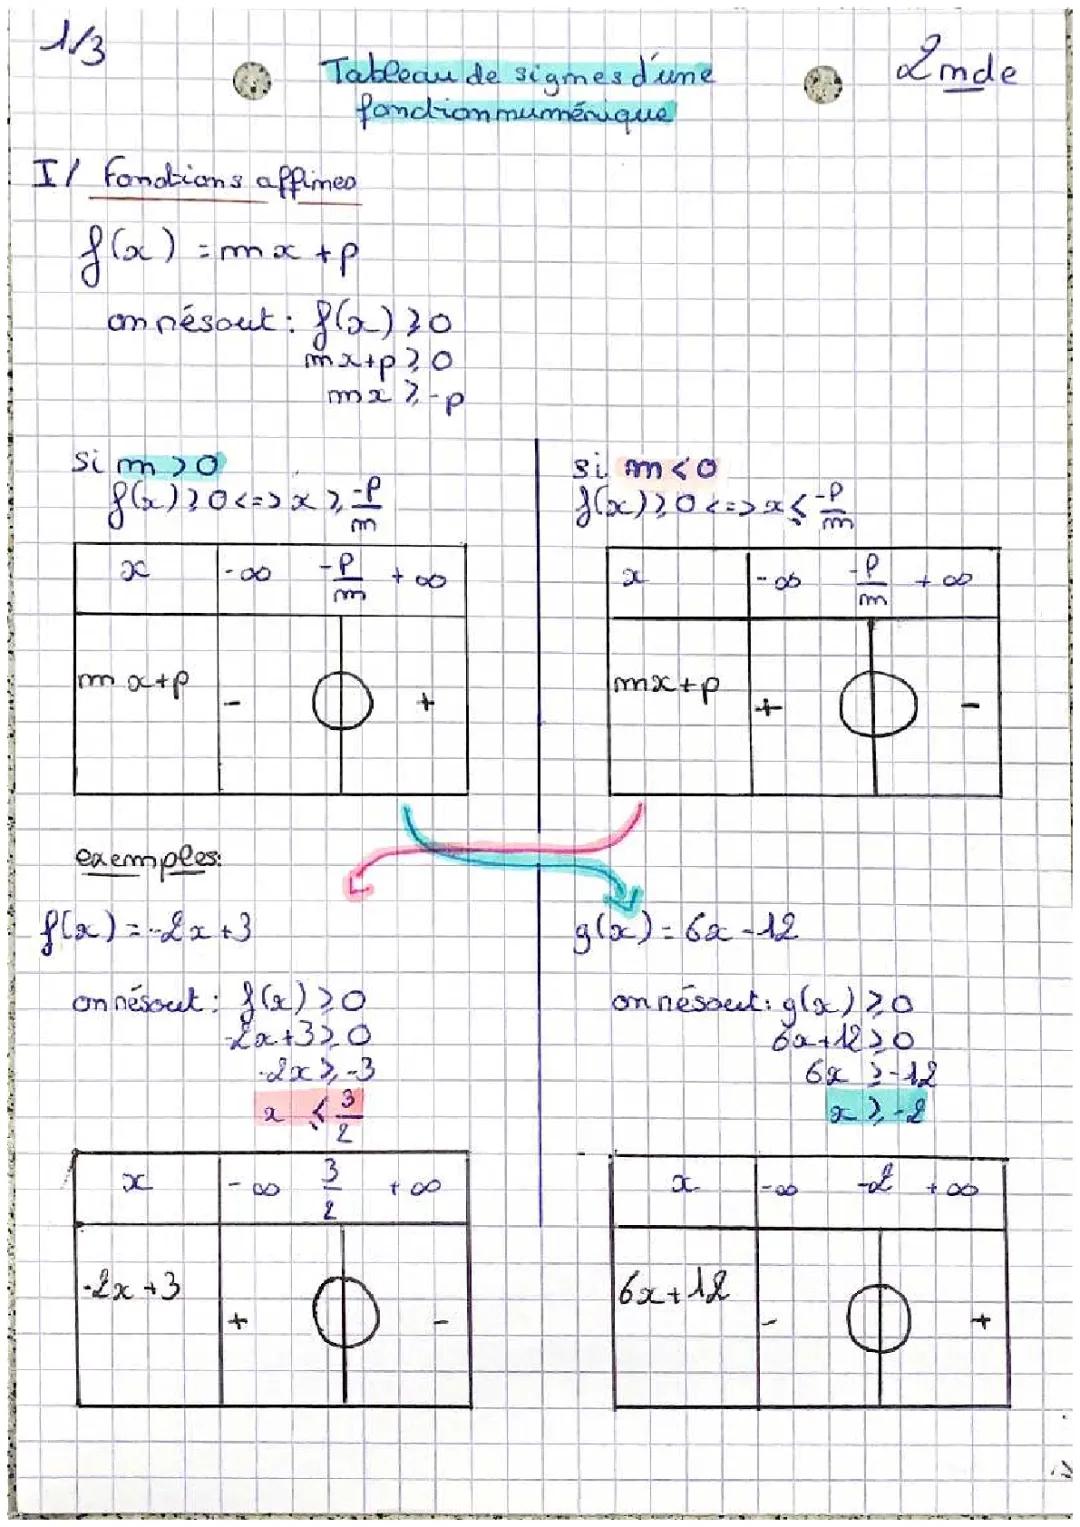 1/3
2nde
Tableau de signes d'une
fonction numérique
I/ Fonctions affines
f(x) = mx + p
on résout : f(x) ⩾ 0
mx+p ⩾ 0
mx ⩾ -p
si m > 0
f(x) ⩾ 0 <=> x ⩾ -p/m
x -∞ -p/m + ∞
mx+p - +
si m < 0
f(x) ⩾ 0 <=> x ⩽ -p/m
x -∞ -p/m + ∞
mx+p + -
exemples:
f(x) = -2x+3
on résout : f(x) ⩾ 0
-2x+3 ⩾ 0
-2x ⩾ -3
x ⩽ 3/2
x -∞ 3/2 +∞
-2x+3 + -
g(x) = 6x-12
on résout : g(x) ⩾ 0
6x+12 ⩾ 0
6x ⩾ -12
x ⩾ -2
x -∞ -2 +∞
6x+12 - +